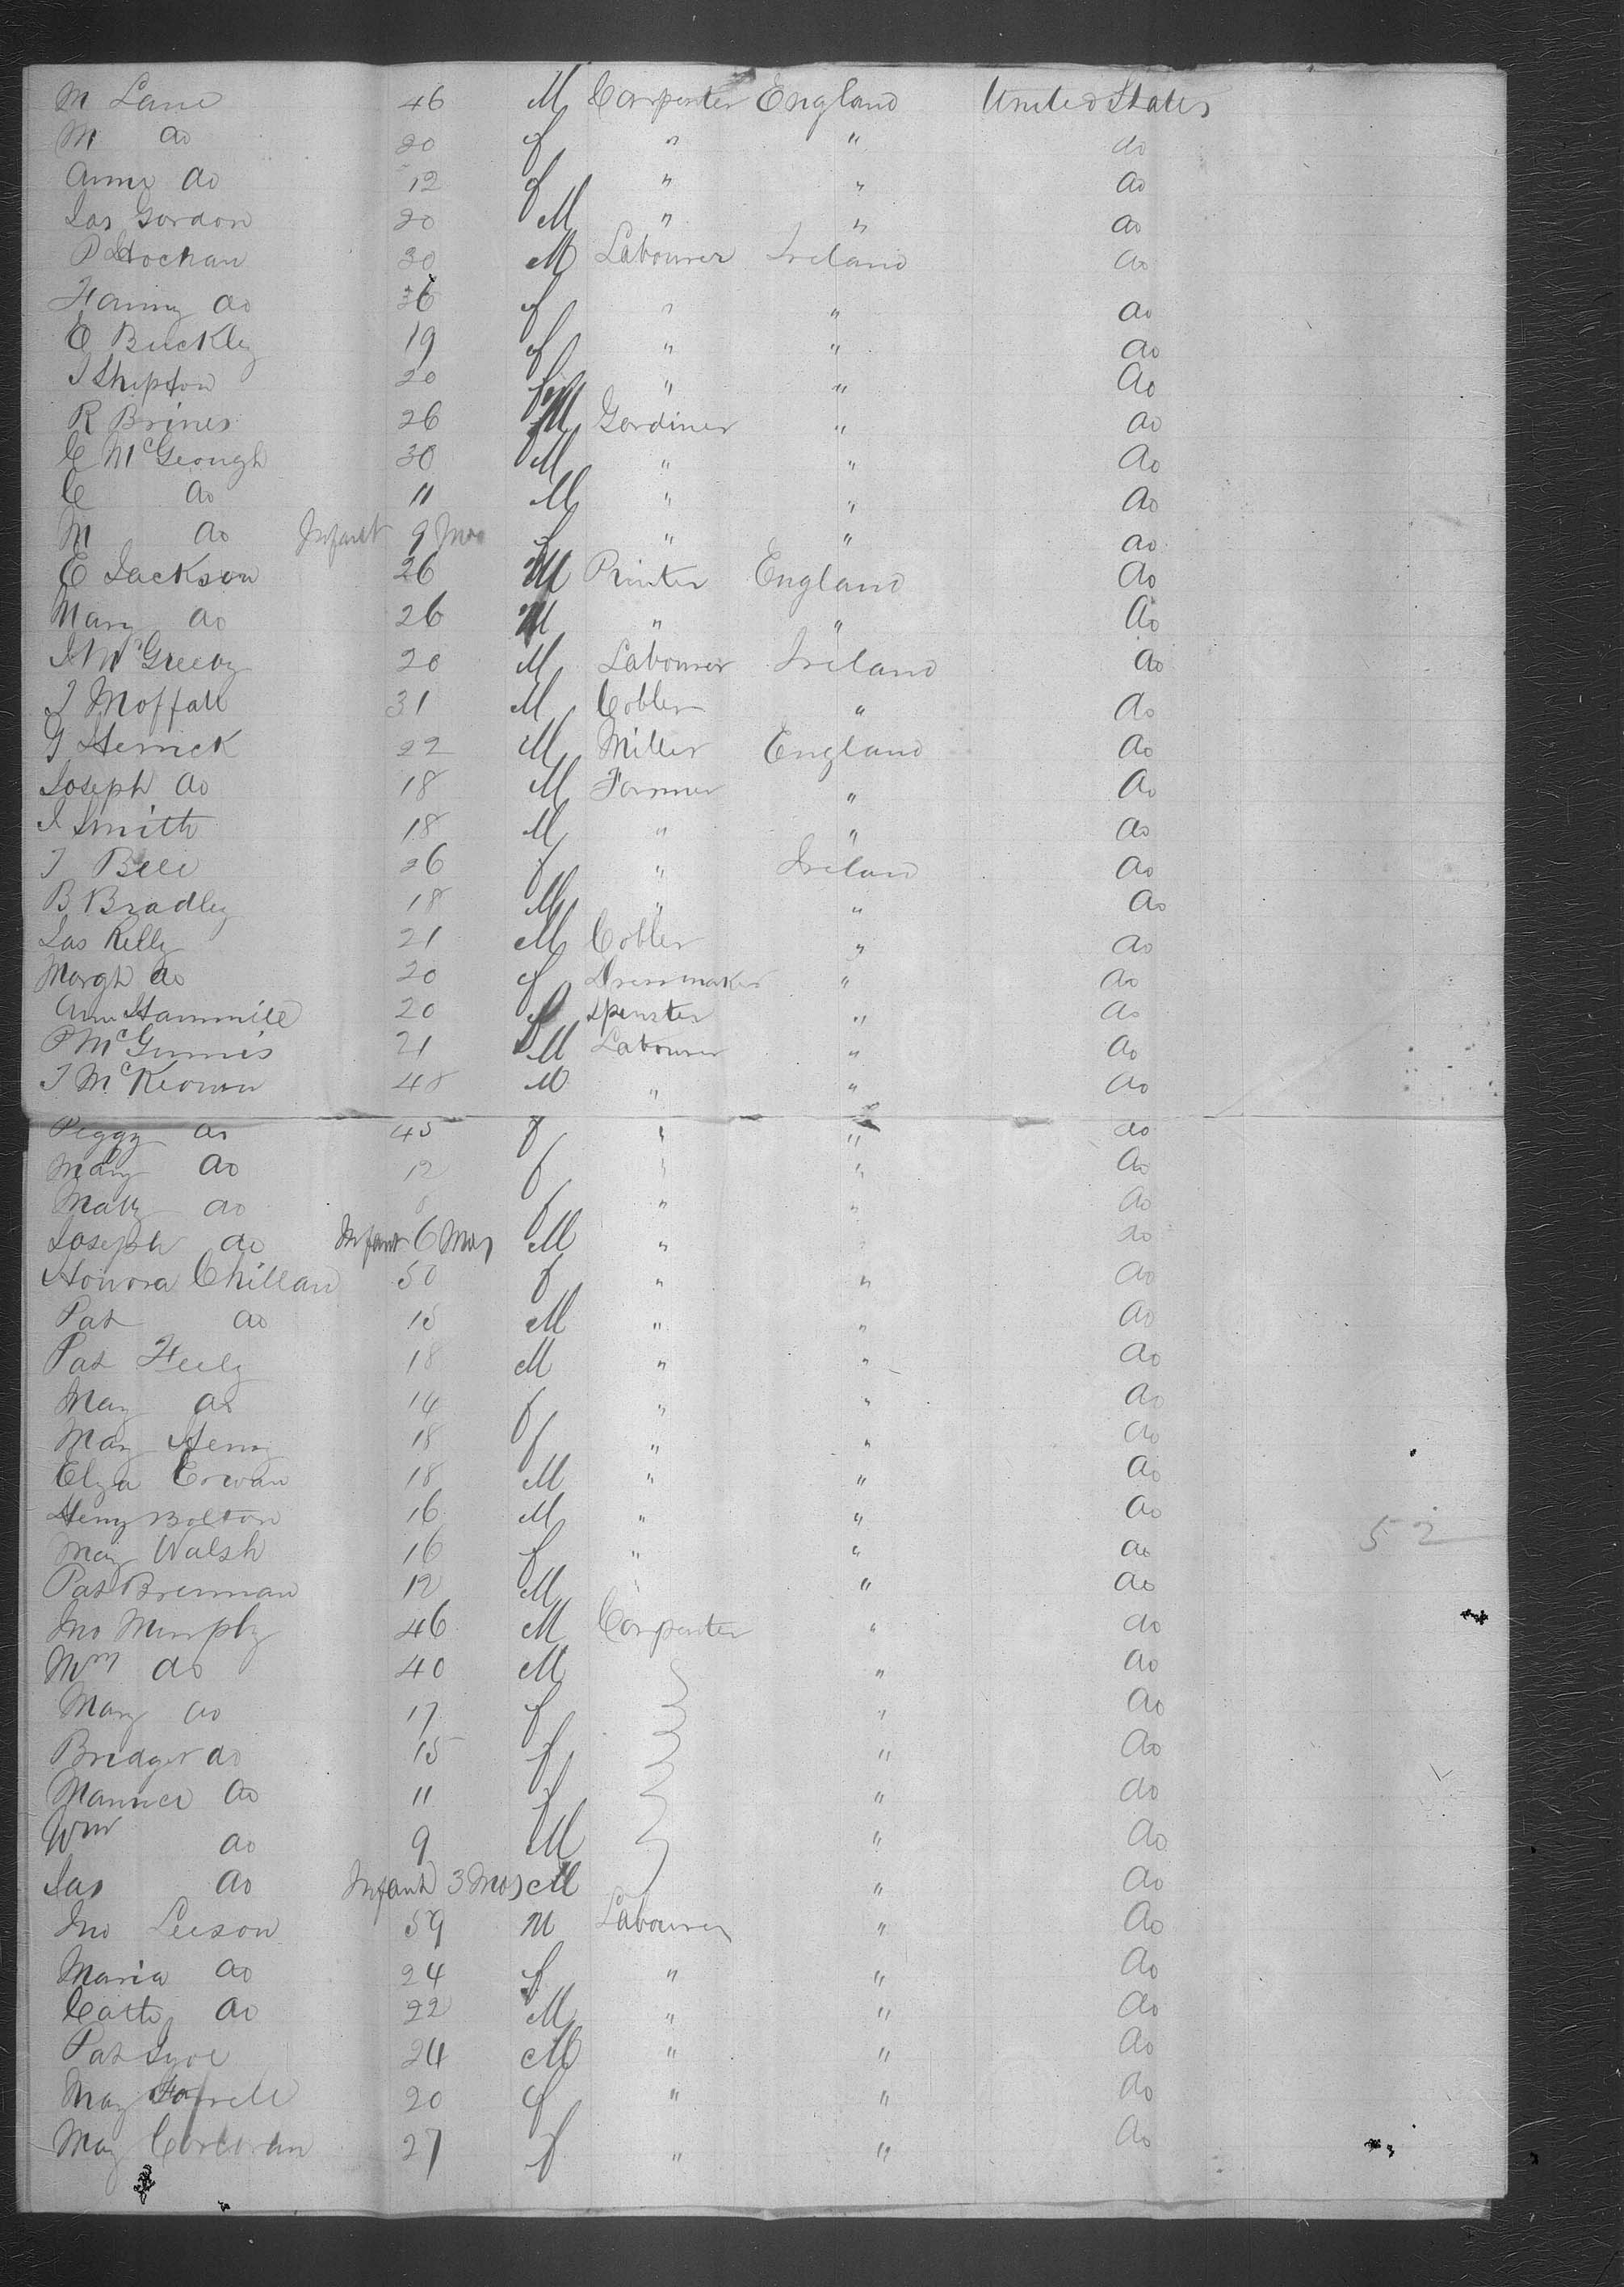 M Lane 46 M Carpenter England United States
M do 20 f " " do
Anne do 12 f " " do
Jas Gordon 20 M " " do
P Hockan 30 M Labourer Ireland do
Fanny do 36 f " " do
E Buckley 19 f " " do
J Shipton 20 f " " do
R Brines 26 M Gardiner " do
C McGeough 30 M " " do
C do 11 M " " do
M do Infant 9 Mos f " " do
E Jackson 26 M Printer England do
Mary do 26 M " " do
J McGreevy 20 M Labourer Ireland do
J Moffatt 31 M Cobler " do
G Herrick 22 M Miller England do
Joseph do 18 M Farmer " do
J Smith 18 M " " do
J Bell 26 f " Ireland do
B Bradley 18 M " " do
Jas Kelly 21 M Cobler " do
Margt do 20 f Dressmaker " do
Ann Hammill 20 f Spinster " do
P McGinnis 21 M Labourer " do
J McKeown 48 M " " do
Peggy do 45 f " " do
Mary do 12 f " " do
Matty do 8 f " " do
Joseph do Infant 6 Mos M " do
Honora Chillan 50 f " " do
Pat do 15 M " " do
Pat Feely 18 M " " do
May do 14 f " " do
May Henry 18 f " " do
Elza Erwan 18 M " " do
Henry Bolton 16 M " " do
May Walsh 16 f " " do
52
Pat Brennan 12 M " do
Jno Murphy 46 M Carpenter " do
do 40 M " do
Mary do 17 f " do
Bridget do 15 f " do
do 11 f " do
Wm do 9 M " do
Jas do Infant 3 Mos M " do
Jno Leeson 59 M Labourer " do
Maria do 24 f " " do
Cath do 22 M " " do
Pat 24 M " " do
May Farrell 20 f " " do
May Corcoran 27 f " " do